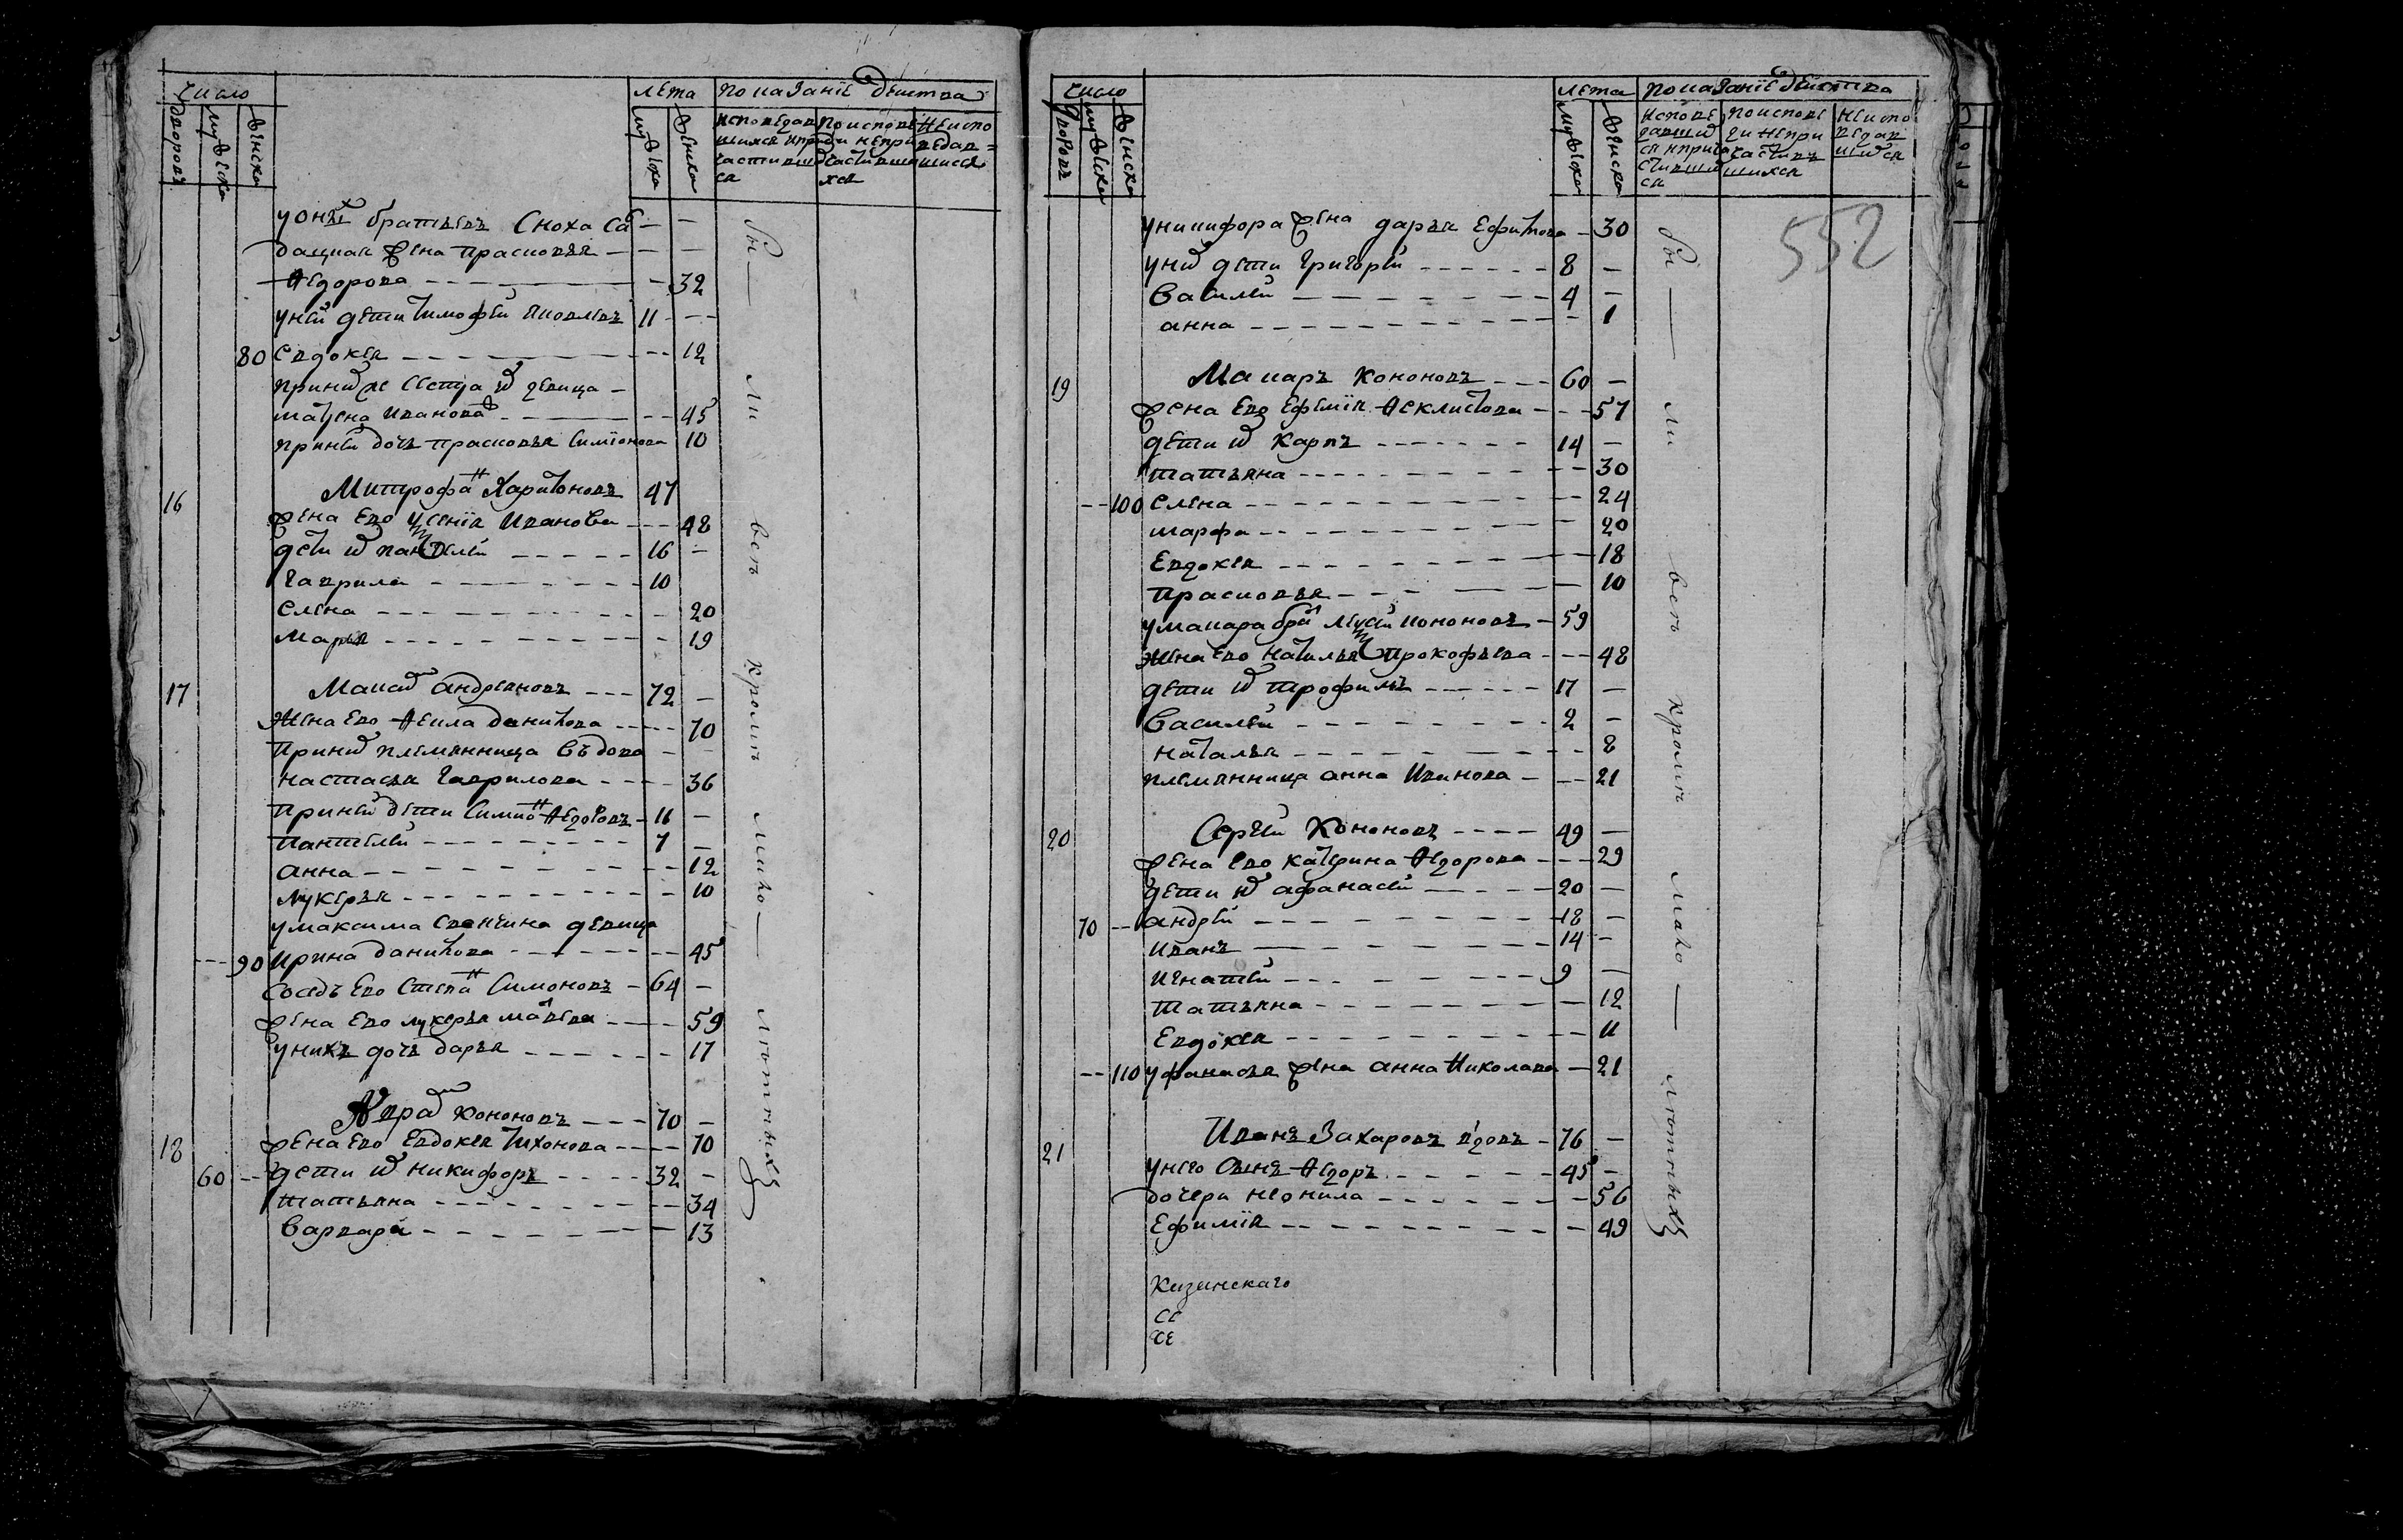 Число
Дворовъ
мужеска
женска
Лета
мужеска
женска
Показаніе действа
исповедав
шихся и при
частивши
ся
по испове
ди непри
частивши
хся
неиспо
ведав=
шихся
у оныхъ братьевъ сноха са
дацкая жена прасковья — — —
Федорова — — 32
у ней дети тимофей яковлевъ 11 — —
80 Евдокея — — 12
при них же сестра их девица —
матрена иванова — — 45
при ней дочь прасковья симіонова 10
16 Митрофанъ Харитоновъ 47
жена ево ксенія иванова — — 48
дети их пантелей — — 16 —
гаврила — — 10
елена — — 20
марья — — 19
17 Макси андреяновъ — — 72 —
жена ево Фекла данилова — — 70
при них племянница въдова —
настасья гаврилова — — 36
при ней дети симионъ Федоровъ — 11 —
пантелей — — 7 —
анна — — 12
лукерья — — 10
у максима девица
— 90 ирина данилова — — 45
соседъ ево степанъ симоновъ — 64 —
жена ево лукерья матвева — — 59
у нихъ дочь дарья — — 17
18 кононовъ — — 70 —
жена ево евдокея тихонова — — 70
60 — дети их никифоръ — — 32 —
татьяна — — 34
варвара — — 13
бы — ли всть кромть мало — лютныхъ
Число
Дворовъ
мужеска
женска
Лета
мужеска
женска
Показаніе действа
исповедавших
ся и прича
стивших
ся
по испове
ди непри
частив
шихся
неиспо
ведав
шихся
552
у никифора жена дарья ефимова — 30
у них дети григорей — — 8 —
василей — — 4 —
анна — — 1
19 Макаръ кононовъ — — 60 —
жена ево ефемія Феклистова — — 57
дети их карпъ — — 14 —
татьяна — — 30
— 100 елена — — 24
марфа — — 20
евдокея — — 18
прасковья — — 10
у макара братъ кононовъ — 59
жена ево наталья прокофьева — — 48
дети их трофимъ — — 17 —
василей — — 2 —
наталья — — 8
племянница анна иванова — — 21
20 Сергей кононовъ — — 49 —
жена ево катерина Федорова — — 29
дети их афанасей — — 20 —
70 — андрей — — 18 —
иванъ — — 14 —
игнатей — — 9 —
татьяна — — 12
евдокея — — 11
— 110 у фанасья жена анна николаева — 21
21 Иванъ Захаровъ вдовъ — 76 —
у него сынъ Федоръ — — 45 —
дочери неонила — — 56
ефимія — — 49
бы — ли всть кромть мало — лютныхъ
Кизинскаго
СЕ
ХЕ